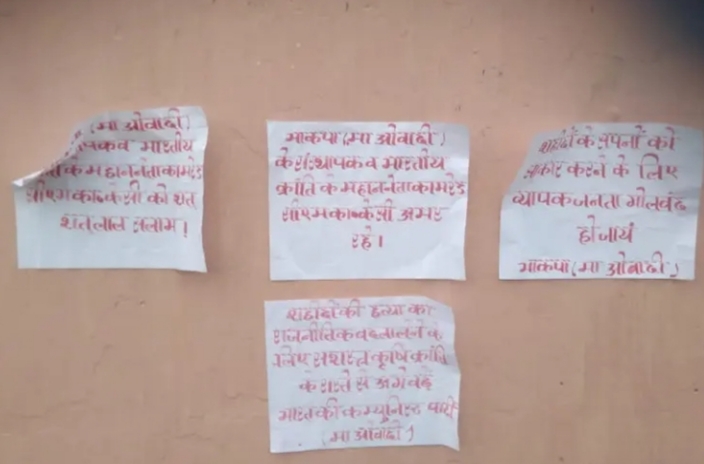 (मा ओवादी)
पकव भारतीय
के महाननेताकामरेड
को शत
शतलाल सलाम।
माकपा (मा ओवादी)
के संस्थापकव भारतीय
क्रांति के महाननेताकामरेड
अमर
रहे।
शहीदों के सपनों को
साकार करने के लिए
व्यापकजनता गोलबंद
होजायं
माकपा (मा ओवादी)
शहीदों की हत्या का
राजनीतिकबदलालेने के
लिए सशस्त्र कृषि क्रांति
के रास्ते से आगेबढ़े
भारतकी कम्युनिस्ट पार्टी
(मा ओवादी)